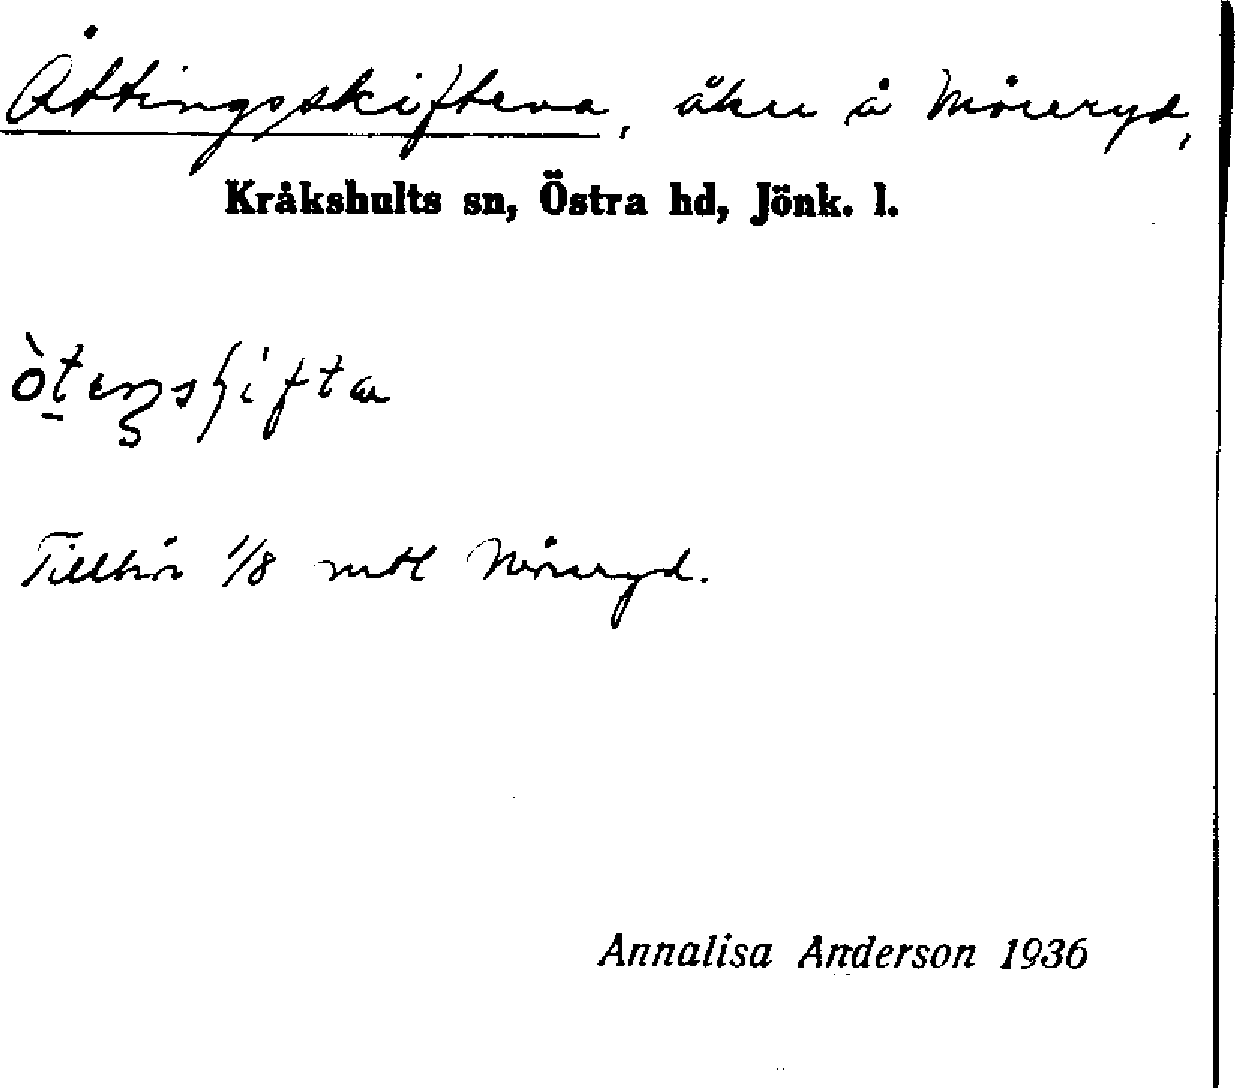 Åttingsskiftena, åker å Måreryd,
Kråkshults sn, Östra hd, Jönk. l.
Tillhör 1/8 mtl Måreryd.
Annalisa Anderson 1936